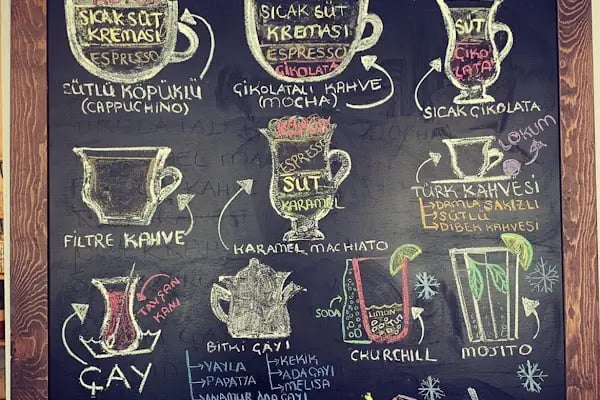 SICAK SÜT
KREMASI
ESPRESSO
SÜTLÜ KÖPÜKLÜ
(CAPPUCHINO)
SICAK SÜT
KREMASI
ESPRESSO
ÇİKOLATA
ÇİKOLATALI KAHVE
(MOCHA)
SÜT
ÇİKO
LATA
SICAK ÇİKOLATA
FİLTRE KAHVE
ESPRESSO
SÜT
KARAMEL
KARAMEL MACHIATO
LOKUM
TÜRK KAHVESİ
DAMLA SAKIZLI
SÜTLÜ
DİBEK KAHVESİ
TAVŞAN
KANI
ÇAY
BİTKİ ÇAYI
YAYLA
PAPATYA
ANAMUR ADAÇAYI
KEKİK
ADAÇAYI
MELİSA
SODA
LİMON
TUZ
CHURCHILL
MOJİTO